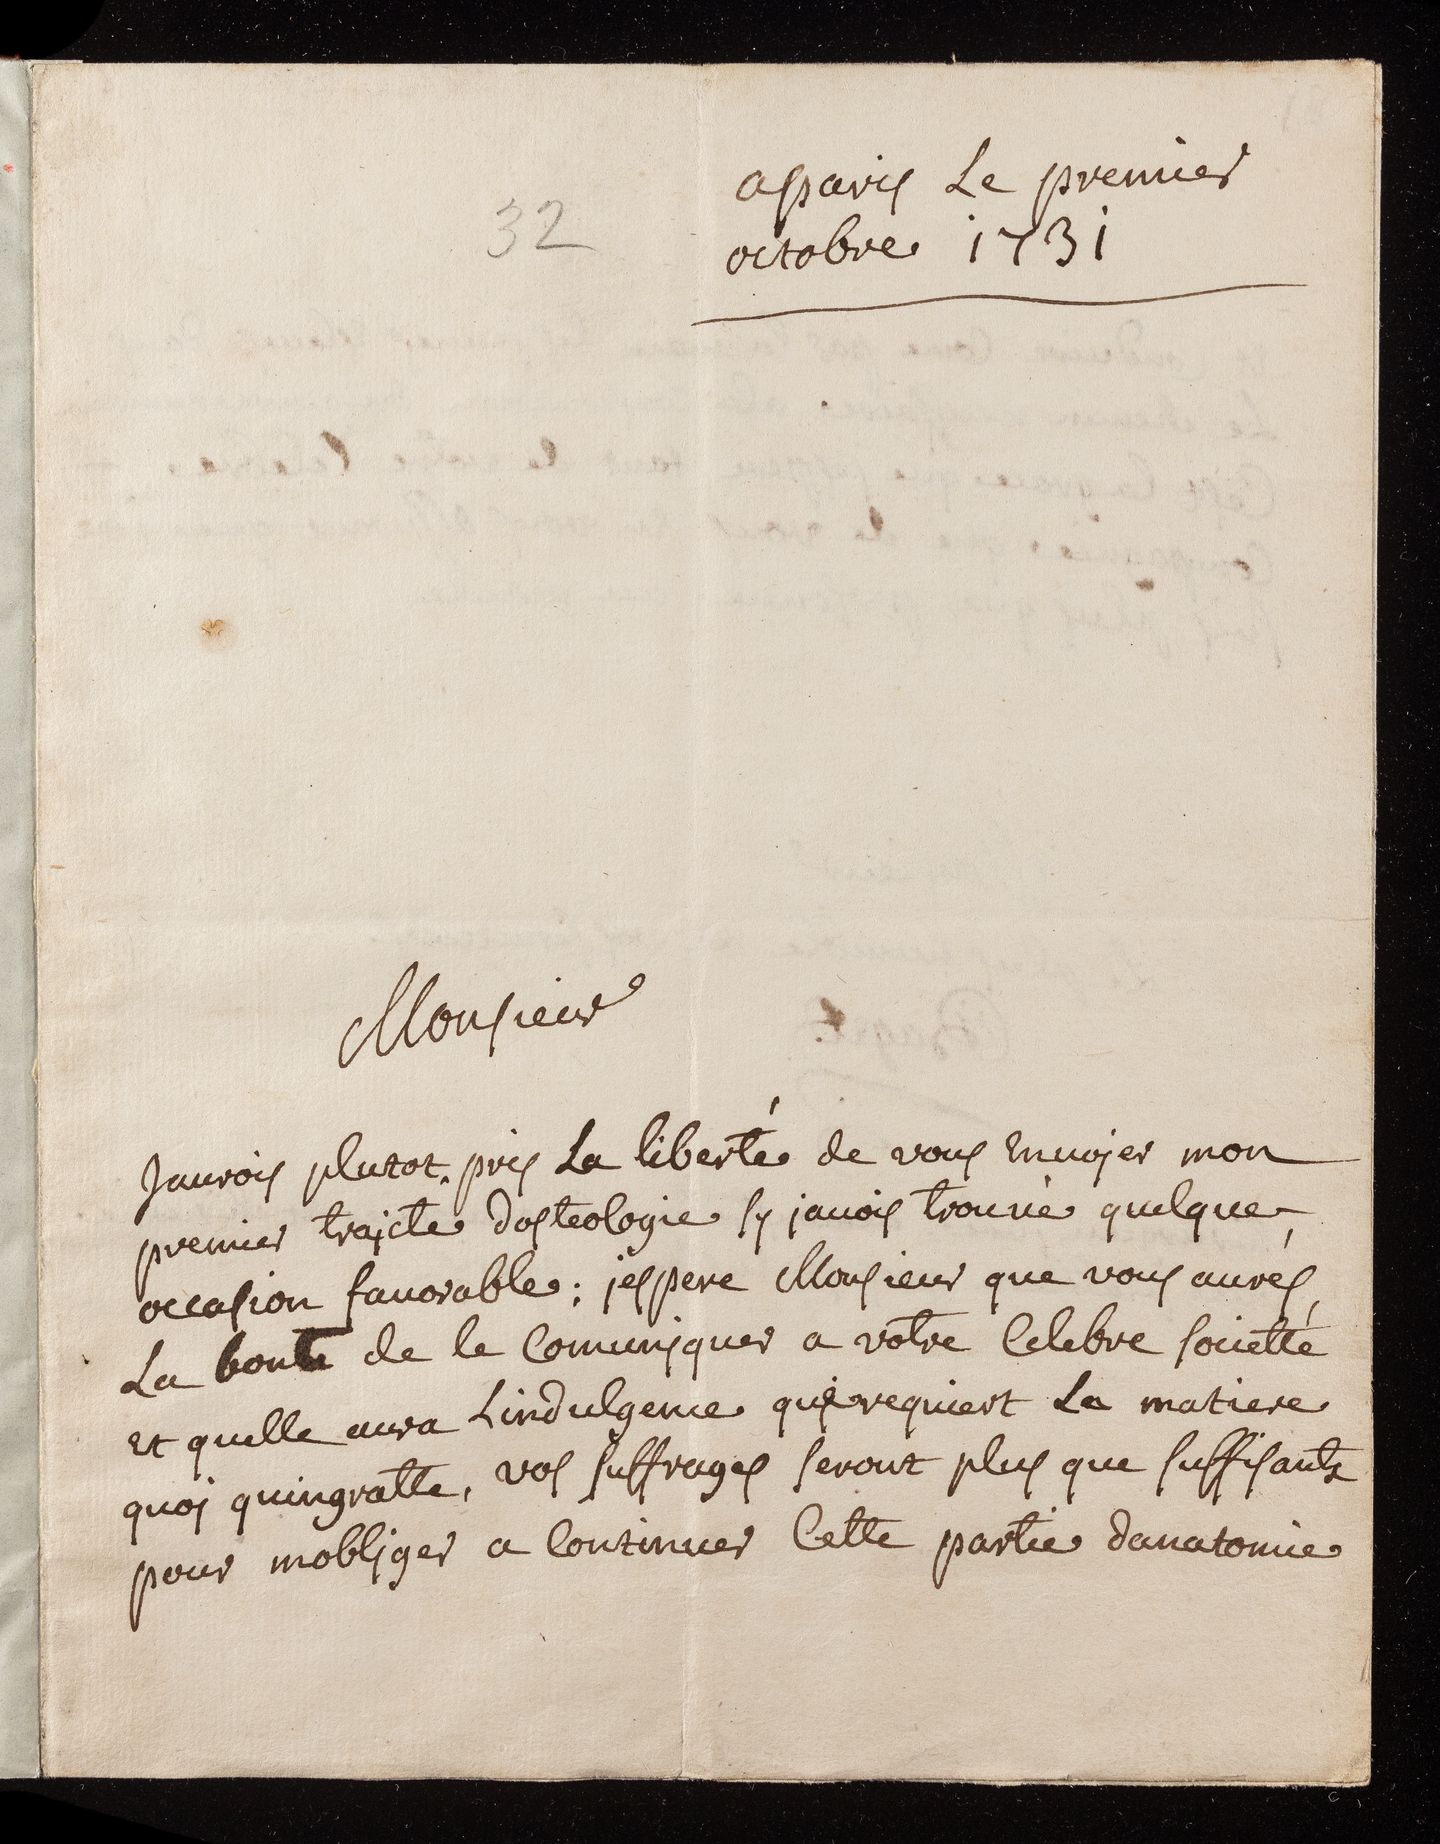 32
aparis Le premier
octobre 1731
Monsieur
Jaurois plutot pris La liberté de vous Envojer mon
premier trajcte dosteologie sy javois trouvé quelque
occasion favorable; jespere Monsieur que vous aurés
La bonte de le Comunjquer a votre Celebre societté
Et quelle aura Lindulgence que requiert La matiere
quoj quingratte, vos suffrages seront plus que suffisants
pour mobljger a Continuer Cette partie danatomie